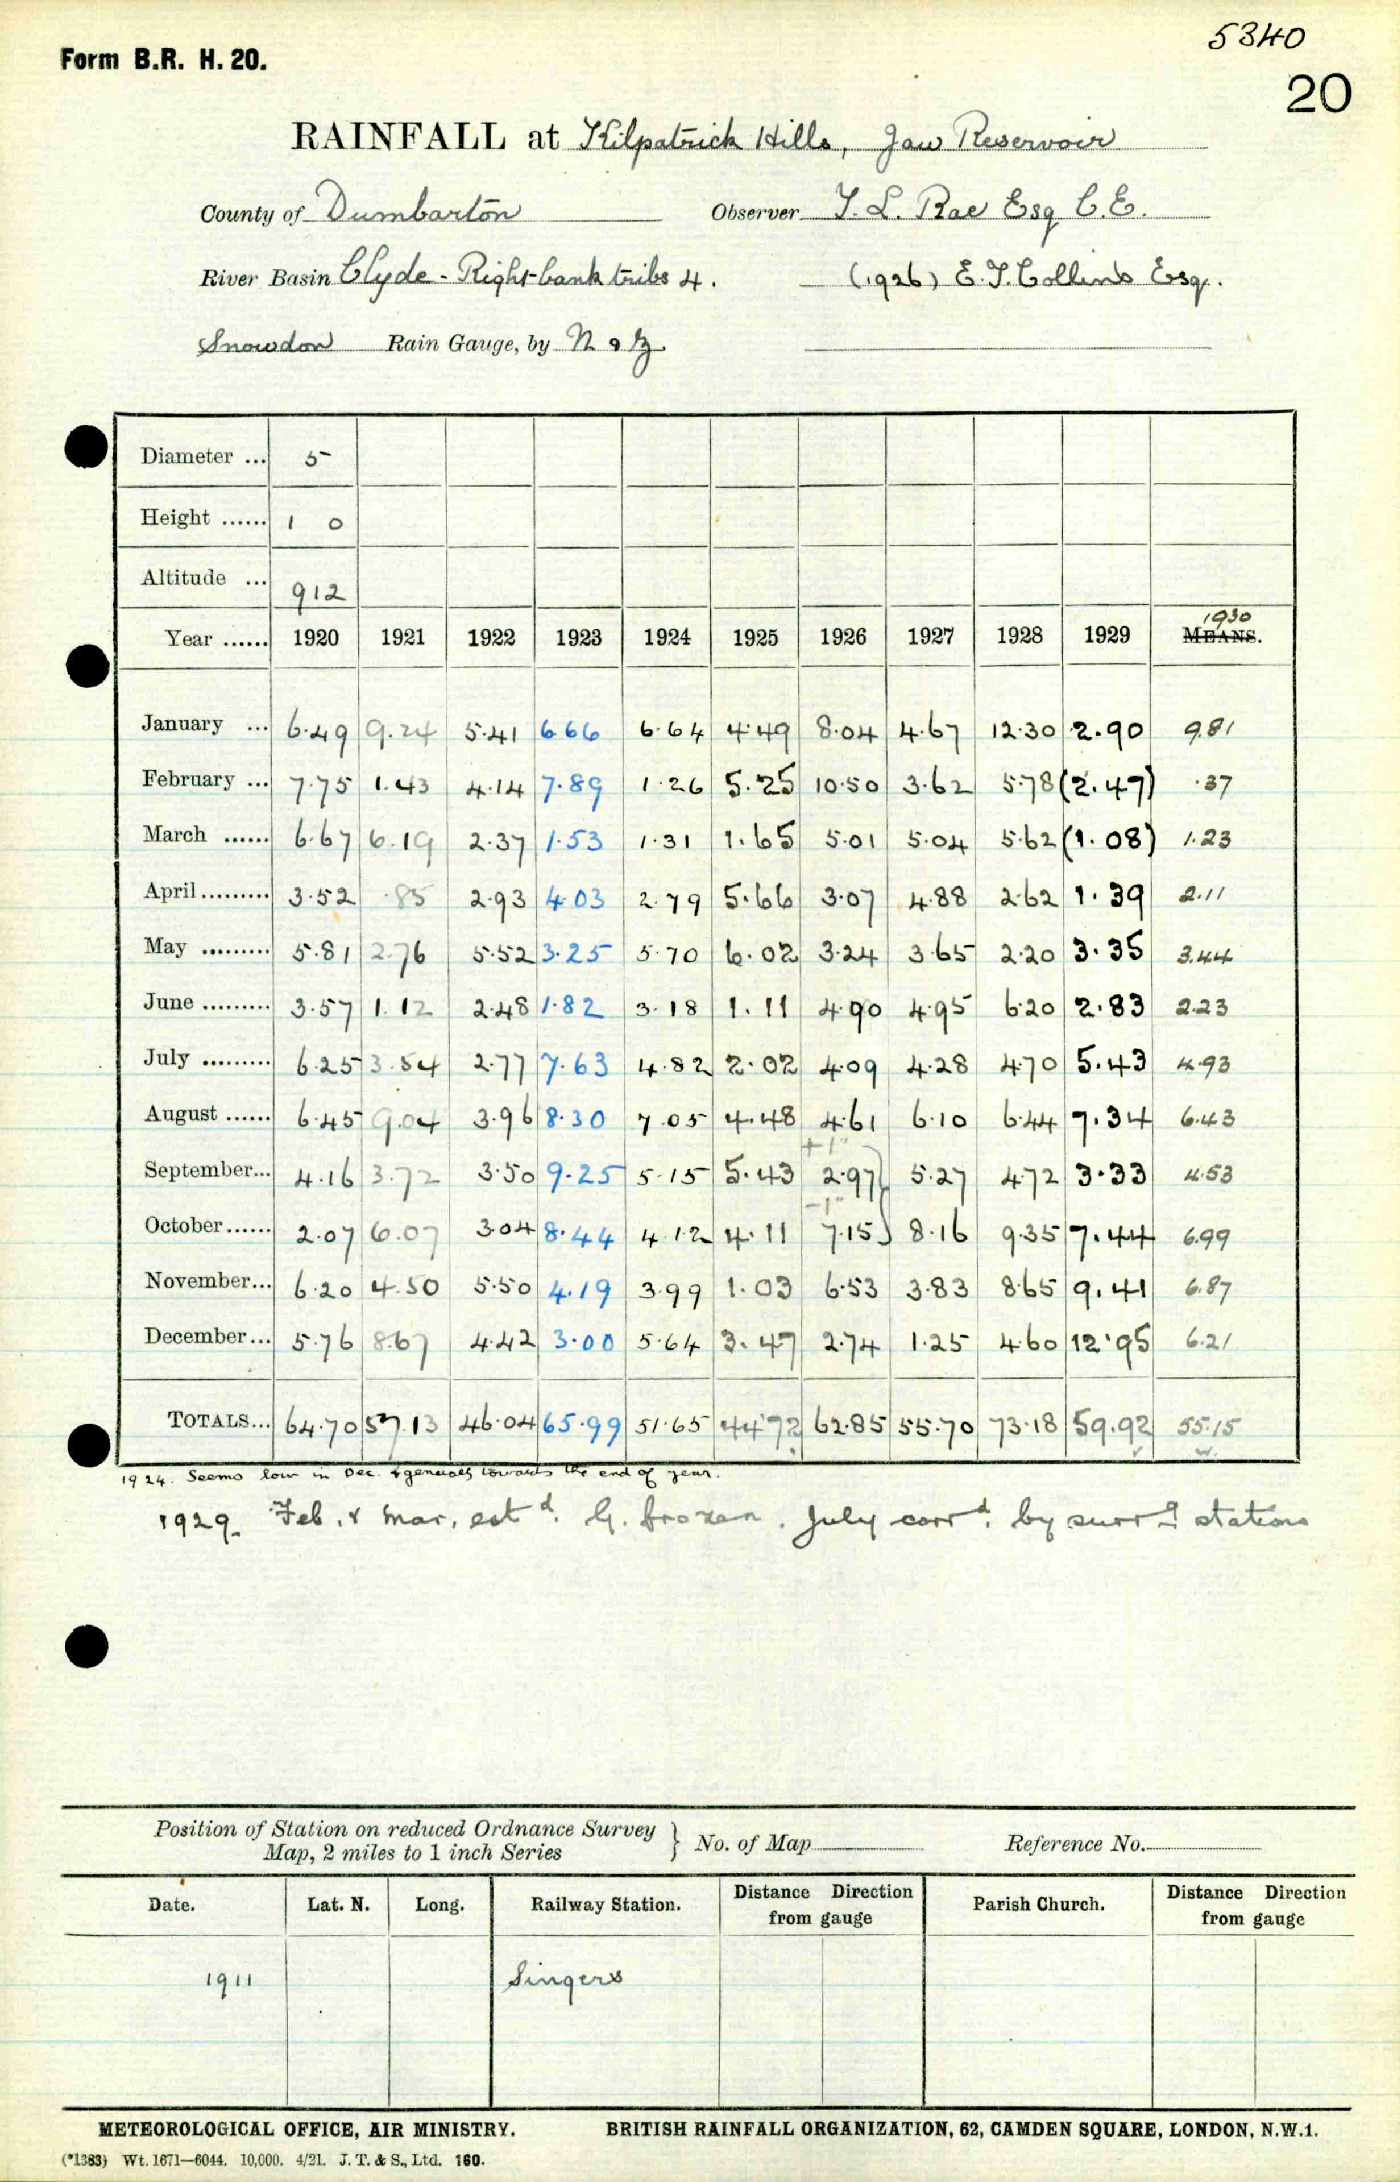 5340
Form B.R. H. 20.
20
RAINFALL at Kilpatrick Hills, Jaw Reservoir
County of Dumbarton Observer T. L. Rae Esq C.E.
River Basin Clyde - Right-bank tribs 4. (1926) E. T. Collins Esq.
Snowdon Rain Gauge, by N & Z
Diameter ... 5
Height ...... 1 0
Altitude ... 912
1930
Year ...... 1920 1921 1922 1923 1924 1925 1926 1927 1928 1929 MEANS.
January ... 6.49 9.24 5.41 6.66 6.64 4.49 8.04 4.67 12.30 2.90 9.81
February ... 7.75 1.43 4.14 7.89 1.26 5.25 10.50 3.62 5.78 (2.47) .37
March ...... 6.67 6.19 2.37 1.53 1.31 1.65 5.01 5.04 5.62 (1.08) 1.23
April ......... 3.52 .85 2.93 4.03 2.79 5.66 3.07 4.88 2.62 1.39 2.11
May ......... 5.81 2.76 5.52 3.25 5.70 6.02 3.24 3.65 2.20 3.35 3.44
June ......... 3.57 1.12 2.48 1.82 3.18 1.11 4.90 4.95 6.20 2.83 2.23
July ......... 6.25 3.54 2.77 7.63 4.82 2.02 4.09 4.28 4.70 5.43 4.93
August ...... 6.45 9.04 3.96 8.30 7.05 4.48 4.61 6.10 6.44 7.34 6.43
+1"
September... 4.16 3.72 3.50 9.25 5.15 5.43 2.97} 5.27 4.72 3.33 4.53
-1"
October...... 2.07 6.07 3.04 8.44 4.12 4.11 7.15} 8.16 9.35 7.44 6.99
November... 6.20 4.50 5.50 4.19 3.99 1.03 6.53 3.83 8.65 9.41 6.87
December... 5.76 8.67 4.42 3.00 5.64 3.47 2.74 1.25 4.60 12.95 6.21
TOTALS... 64.70 57.13 46.04 65.99 51.65 44.72 62.85 55.70 73.18 59.92 55.15
1924. Seems low in Dec. & generally towards the end of year.
1929. Feb. & Mar. estd. G. frozen. July corrd. by surrg stations
Position of Station on reduced Ordnance Survey Map, 2 miles to 1 inch Series } No. of Map Reference No.
Date. Lat. N. Long. Railway Station. Distance Direction from gauge Parish Church. Distance Direction from gauge
1911 Singers
METEOROLOGICAL OFFICE, AIR MINISTRY. BRITISH RAINFALL ORGANIZATION, 62, CAMDEN SQUARE, LONDON, N.W.1.
(*1383) Wt. 1671—6044. 10,000. 4/21. J. T. & S., Ltd. 160.